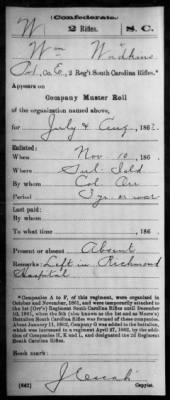 (Confederate.)
W 2 Rifles. S. C.
Wm Watkins
Pvt, Co. E, 2 Reg't South Carolina Rifles.*
Appears on
Company Muster Roll
of the organization named above,
for July & Aug, 186
Enlisted:
When Nov. 10, 186
Where
By whom Col. Orr
Period 3 yrs or war
Last paid:
By whom
To what time , 186
Present or absent Absent
Remarks: Left in Richmond
Hospital
*Companies A to F, of this regiment, were organized in
October and November, 1861, and were temporarily attached to
the 1st (Orr's) Regiment South Carolina Rifles until December
10, 1861, when the 5th (also known as the 1st and as Moore's)
Battalion South Carolina Rifles was formed of these companies.
About January 11, 1862, Company G was added to the battalion,
which was increased to a regiment April 27, 1862, by the addi-
tion of Companies H, K and L, and designated the 2d Regiment
South Carolina Rifles.
Book mark:
(642) Copyist.